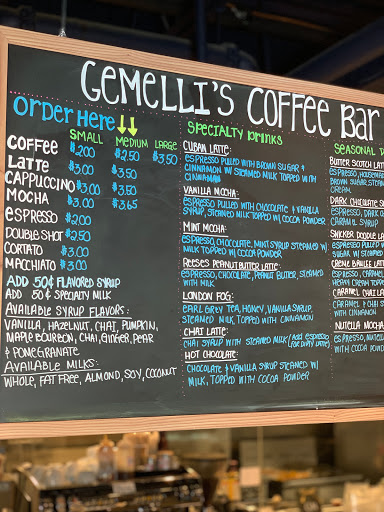 GEMELLI'S COFFEE BAR
ORDER HERE
SMALL MEDIUM LARGE
COFFEE $2.00 $2.50 $3.50
LATTE $3.00 $3.50
CAPPUCCINO $3.00 $3.50
MOCHA $3.00 $3.65
ESPRESSO $2.00
DOUBLE SHOT $2.50
CORTADO $3.00
MACCHIATO $3.00
ADD 50¢ FLAVORED SYRUP
ADD 50¢ SPECIALTY MILK
AVAILABLE SYRUP FLAVORS:
VANILLA, HAZELNUT, CHAI, PUMPKIN,
MAPLE BOURBON, CHAI, GINGER, PEAR
& POMEGRANATE
AVAILABLE MILKS:
WHOLE, FAT FREE, ALMOND, SOY, COCONUT
SPECIALTY DRINKS
CUBAN LATTE:
ESPRESSO PULLED WITH BROWN SUGAR &
CINNAMON W/ STEAMED MILK TOPPED WITH
CINNAMON
VANILLA MOCHA:
ESPRESSO PULLED WITH CHOCOLATE & VANILLA
SYRUP, STEAMED MILK TOPPED W/ COCOA POWDER
MINT MOCHA:
ESPRESSO, CHOCOLATE, MINT SYRUP STEAMED W/
MILK, TOPPED WITH COCOA POWDER
REESES PEANUTBUTTER LATTE:
ESPRESSO, CHOCOLATE, PEANUT BUTTER, STEAMED
WITH MILK
LONDON FOG:
EARL GREY TEA, HONEY, VANILLA SYRUP,
STEAMED MILK, TOPPED WITH CINNAMON
CHAI LATTE:
CHAI SYRUP WITH STEAMED MILK (ADD ESPRESSO
FOR DIRTY LATTE)
HOT CHOCOLATE:
CHOCOLATE & VANILLA SYRUP STEAMED W/
MILK, TOPPED WITH COCOA POWDER
SEASONAL
BUTTER SCOTCH LATT
ESPRESSO, HOUSEMA
BROWN SUGAR, STEAMED
CREAM
DARK CHOCOLATE
ESPRESSO, DARK
CARAMEL SYRUP
SNICKER DOODLE LA
ESPRESSO PULLED W/
SUGAR W/ STEAMED
CREME BRULEE LATTE
ESPRESSO, CARAMEL
HEAVY CREAM TOPPED
CARAMEL CHAI LA
CARAMEL & CHAI
WITH CINNAMON
NUTELLA MOCHA
ESPRESSO, NUTELLA
WITH COCOA POWD